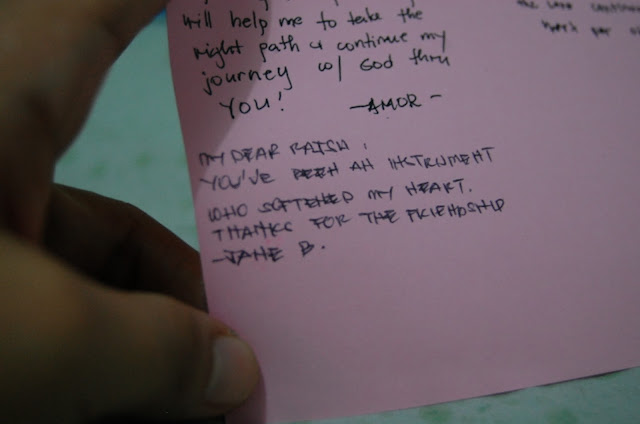 will help me to take the
right path & continue my
journey w/ God thru
YOU!
-AMOR-
MY DEAR RAISH,
YOU'VE BEEN AN INSTRUMENT
WHO SOFTENED MY HEART.
THANKS FOR THE FRIENDSHIP
-JANE B.
the